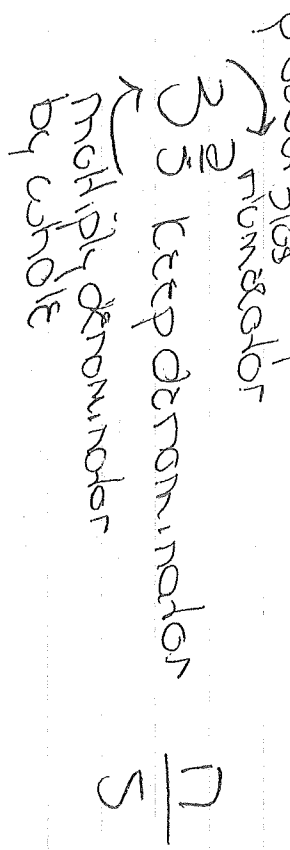 plus
numerator
3 2/5 keep denominator
multiply denominator
by whole
17/5